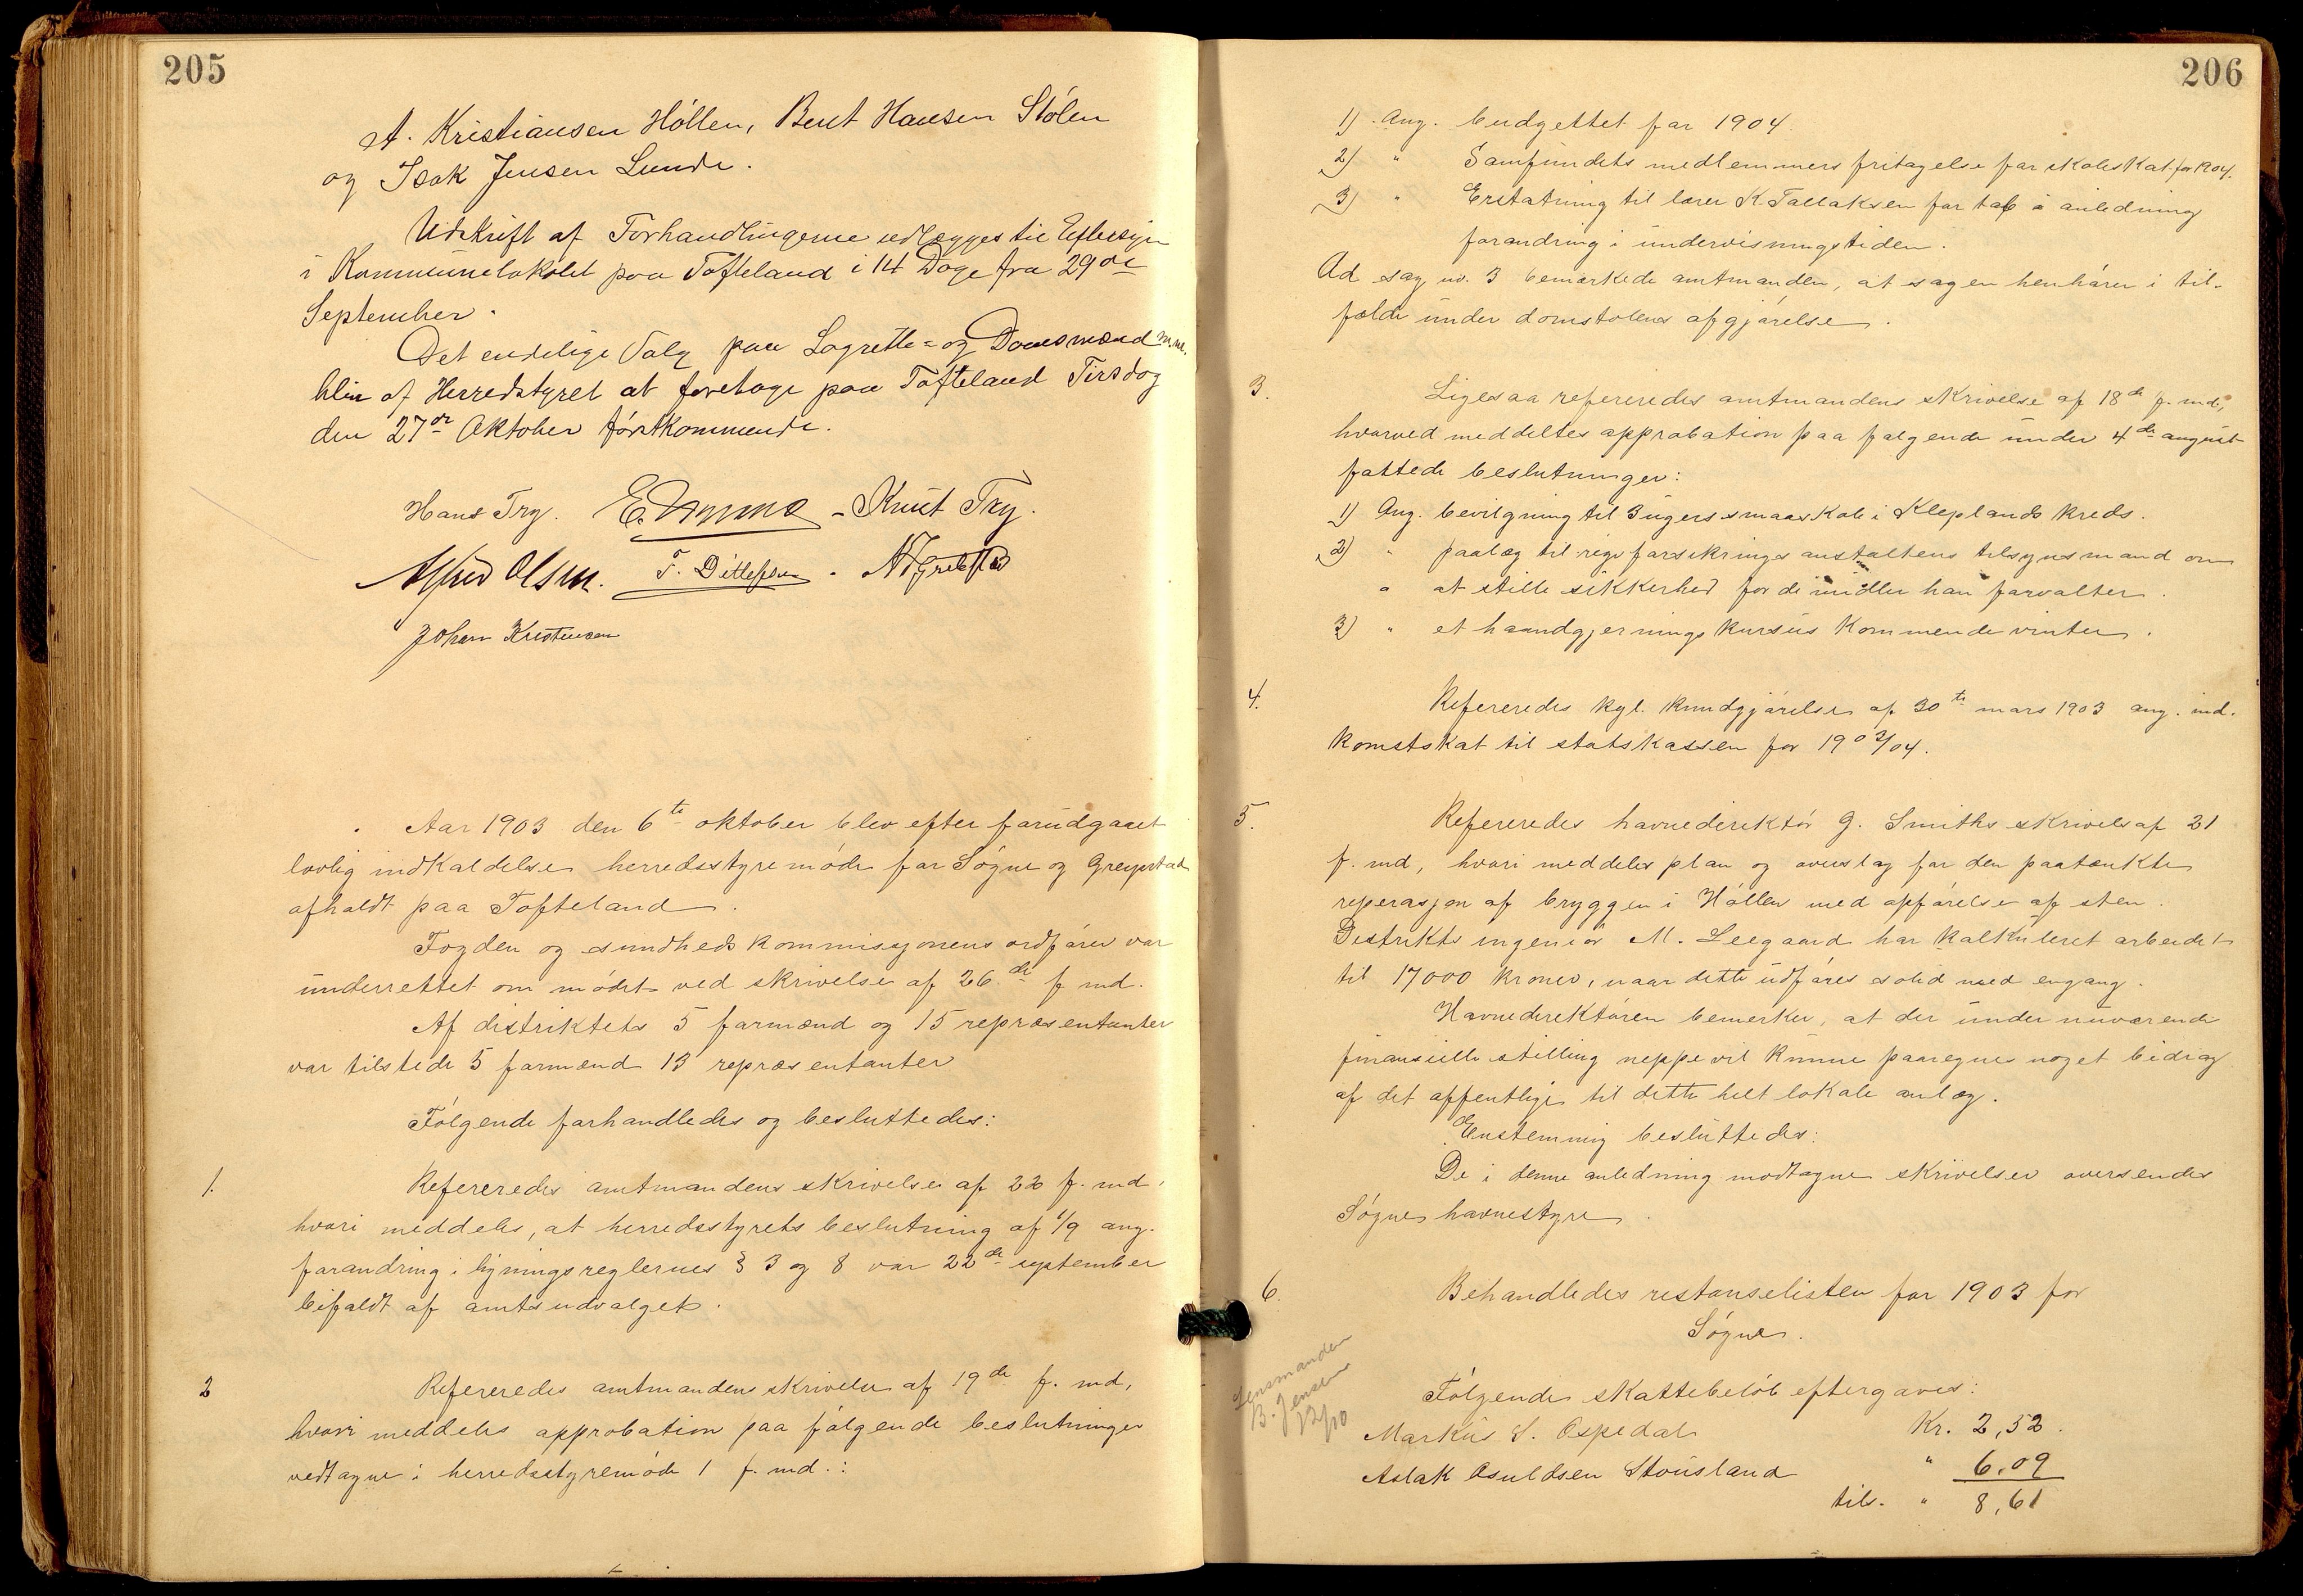 205
A. Kristiansen Höllen, Bent Hansen Stölen
og Isak Jensen Lunde.
Udskrift af Forhandlingerne udlægges til Eftersyn
i Kommunelokalet paa Tofteland i 14 Dage fra 29de
September.
Det endelige Valg paa Lagrette- og Domsmænd m.m.
bliver af Herredstyret at foretage paa Tofteland Tirsdag
den 27de Oktober förstkommende.
Hans Try. - Knut Try.
Alfred Olsen. T. Ditlefsen.
Johan Kristiansen
Aar 1903 den 6te oktober blev efter forudgaaet
lovlig indkaldelse herredsstyremöde for Sögne og Greipstad
afholdt paa Tofteland.
Fogden og sundhedskommissjonens ordförer var
underrettet om mödet ved skrivelse af 26de f. md.
Af distriktets 5 formænd og 15 repræsentanter
var tilstede 5 formænd 13 repræsentanter
Fölgende forhandledes og besluttedes:
1. Refereredes amtmandens skrivelse af 22 f. md.,
hvori meddeles, at herredsstyrets beslutning af 1/9 ang.
forandring i ligningsreglernes § 3 og 8 var 22de september
bifaldt af amtsudvalget.
2 Refereredes amtmandens skrivelse af 19de f. md,
hvori meddeles approbation paa fölgende beslutninger
vedtagne i herredsstyremöde 1 f. md.:
206
1) Ang. budgettet for 1904.
2) " Samfundets medlemmers fritagelse for skoleskat for 1904.
3) " Erstatning til lærer K. Tallaksen for tab i anledning
forandring i undervisningstiden.
Ad sag nr. 3 bemærkede amtmanden, at sagen henhörer i til-
fælde under domstolenes afgjörelse.
3. Ligesaa refereredes amtmandens skrivelse af 18de f. md.,
hvorved meddeltes approbation paa fölgende under 4de august
fattede beslutninger:
1) Ang. bevilgning til 3 ugers smaaskole i Kleplands kreds.
2) " paalæg til rigsforsikringsanstaltens tilsynsmand om
" at stille sikkerhed for de midler han forvalter.
3) " et haandgjerningskursus kommende vinter.
4. Refereredes kgl. kundgjörelse af 30te mars 1903 ang. ind-
komstskat til statskassen for 1903/04.
5. Refereredes havnedirektör G. Smiths skrivels af 21
f. md, hvori meddeles plan og overslag for den paatænkte
reperasjon af bryggen i Höllen med opförelse af sten.
Distriktsingeniör M. Leegaard har kalkuleret arbeidet
til 17000 kroner, naar dette udföres solid med engang.
Havnedirektören bemerker, at der under nuværende
finansielle stilling neppe vil kunne paaregnes noget bidrag
af det offentlige til dette helt lokale anlæg.
Enstemmig besluttedes:
De i denne anledning modtagne skrivelser oversendes
Sögne havnestyre.
6. Behandledes restanselisten for 1903 for
Sögne.
Lensmanden
B. Jensen
12/10
Fölgende skattebelöb eftergaves:
Markus S. Ospedal Kr. 2,52.
Aslak Osuldsen Stousland " 6.09
tils. " 8,61